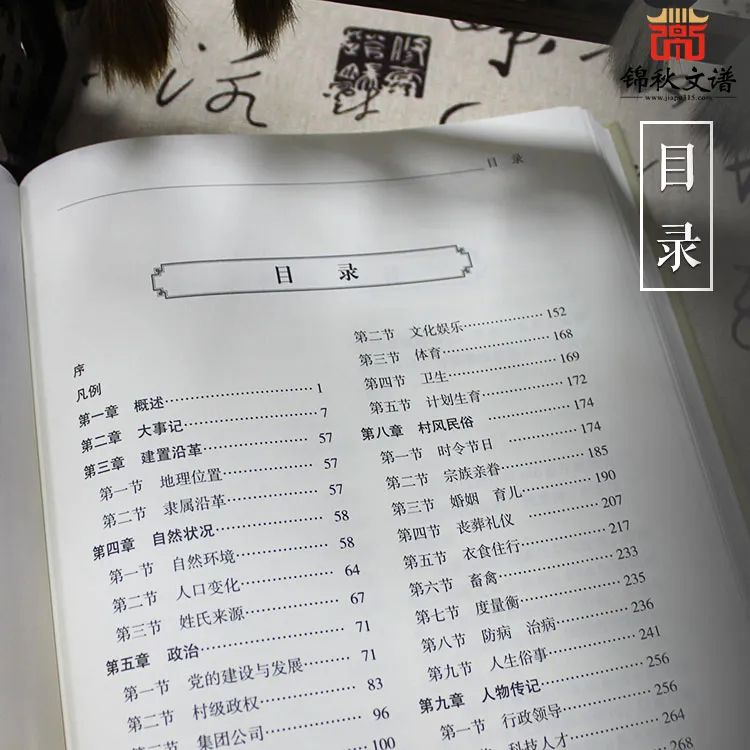 锦秋文谱
www.jiapu315.com
目录
目 录
目 录
序
凡例
第一章 概述 1
第二章 大事记 7
第三章 建置沿革 57
第一节 地理位置 57
第二节 隶属沿革 57
第四章 自然状况 58
第一节 自然环境 58
第二节 人口变化 64
第三节 姓氏来源 67
第五章 政治 71
第一节 党的建设与发展 71
第二节 村级政权 83
第三节 集团公司 96
100
第二节 文化娱乐 152
第三节 体育 168
第四节 卫生 169
第五节 计划生育 172
第八章 村风民俗 174
第一节 时令节日 174
第二节 宗族亲眷 185
第三节 婚姻 育儿 190
第四节 丧葬礼仪 207
第五节 衣食住行 217
第六节 畜禽 233
第七节 度量衡 235
第八节 防病 治病 236
第九节 人生俗事 241
第九章 人物传记 256
第一节 行政领导 256
科技人才 264
268